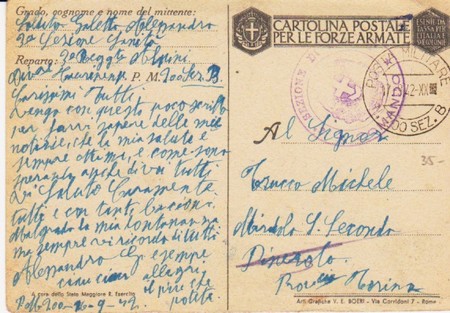 Grado, cognome e nome del mittente:
Soldato Galetto Alessandro
3ª Sezione Sanità
Reparto: 3° Regg.to Alpini
P. M. 200 Sez. B
Carissimi Tutti
Vengo con questo poco scritto
per farvi sapere delle mie
notizie, che la mia salute è
sempre ottima, e come sono
anche di voi tutti
Vi Saluto Caramente
tutti e con tanti bacioni
Malgrado la mia lontananza
ma sempre vi ricordo di tutti
Alessandro G. sempre
allegri
il più che
A cura dello Stato Maggiore R. Esercito
9-42
CARTOLINA POSTALE
PER LE FORZE ARMATE
ESENTE DA
TASSA PER
L'ITALIA E
SEZIONE
POSTA MILITARE
42-XX
200 SEZ. B
Al Signor
35-
Trucco Michele
Miradolo S. Secondo
Pinerolo
Torino
Arti Grafiche V. E. BOERI - Via Corridoni 7 - Roma